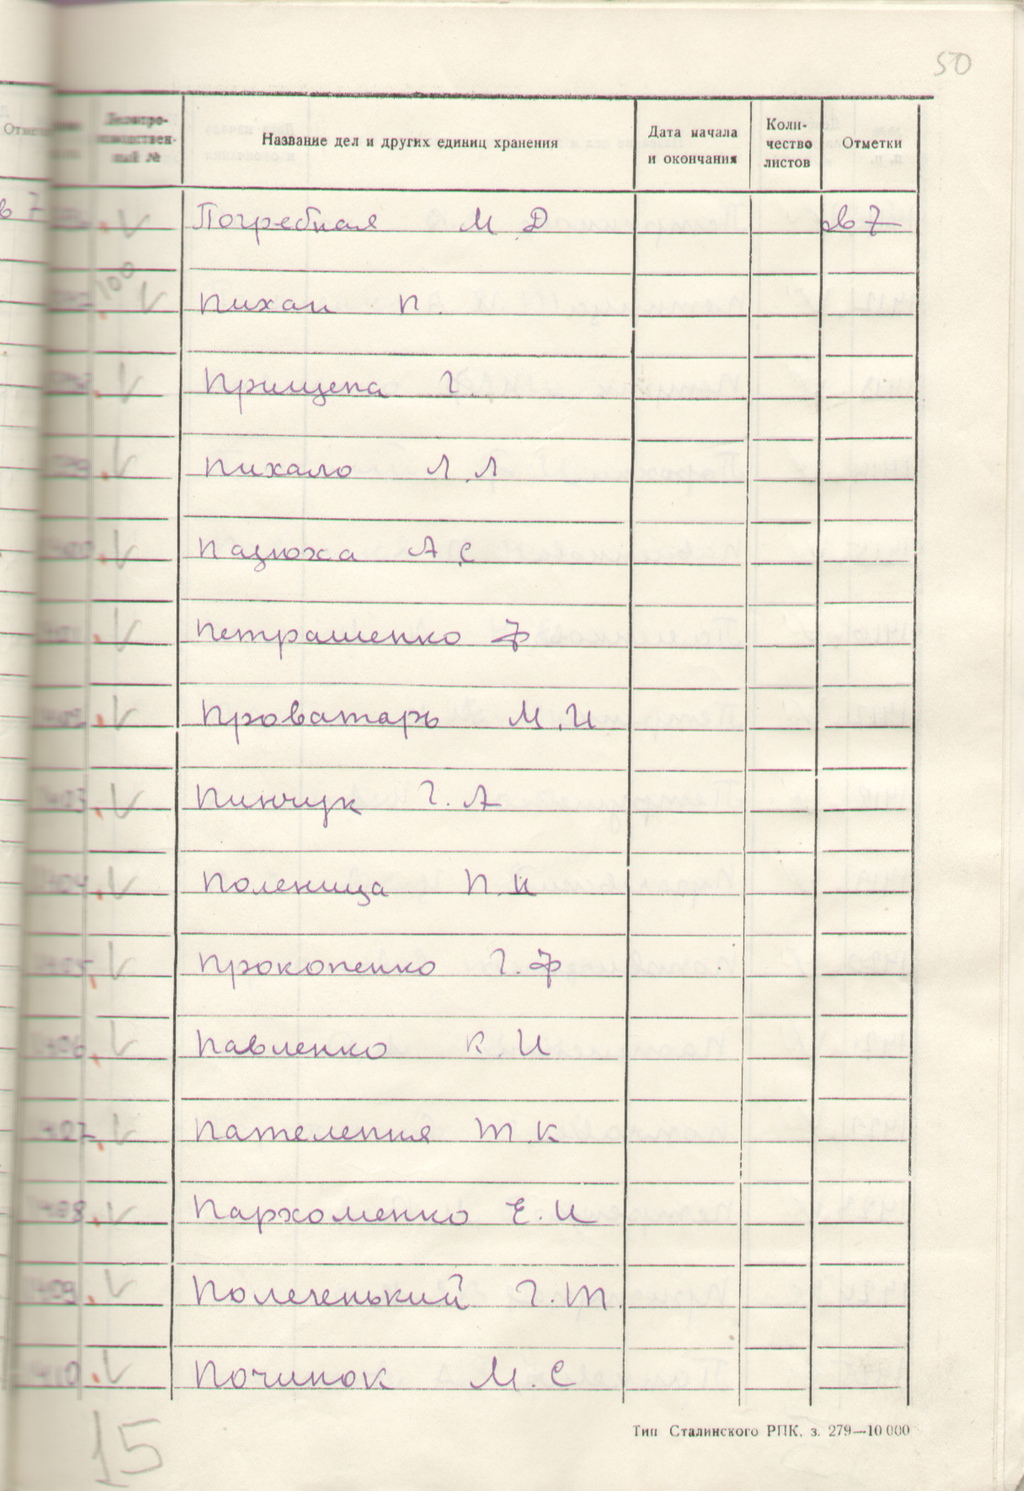 50
Отмет
Делопро-
изводствен-
ный №
Название дел и других единиц хранения
Дата начала
и окончания
Коли-
чество
листов
Отметки
в 7
Погребная М Д
в 7
100
Пихай П.
Прищепа Г.
Пихало Л.Л
Пацюха А С
Петрашенко Ф
Проватарь М.И
1403 Пинчук Г.А
1404 Поленица П.И
1405 Прокопенко Г.Ф
1406 Павленко К.И
1407 Пателепня Т К
1408 Пархоменко Е.И
1409 Полегенький Г.Т.
1410 Починок М.С
15
Тип Сталинского РПК. з. 279—10 000